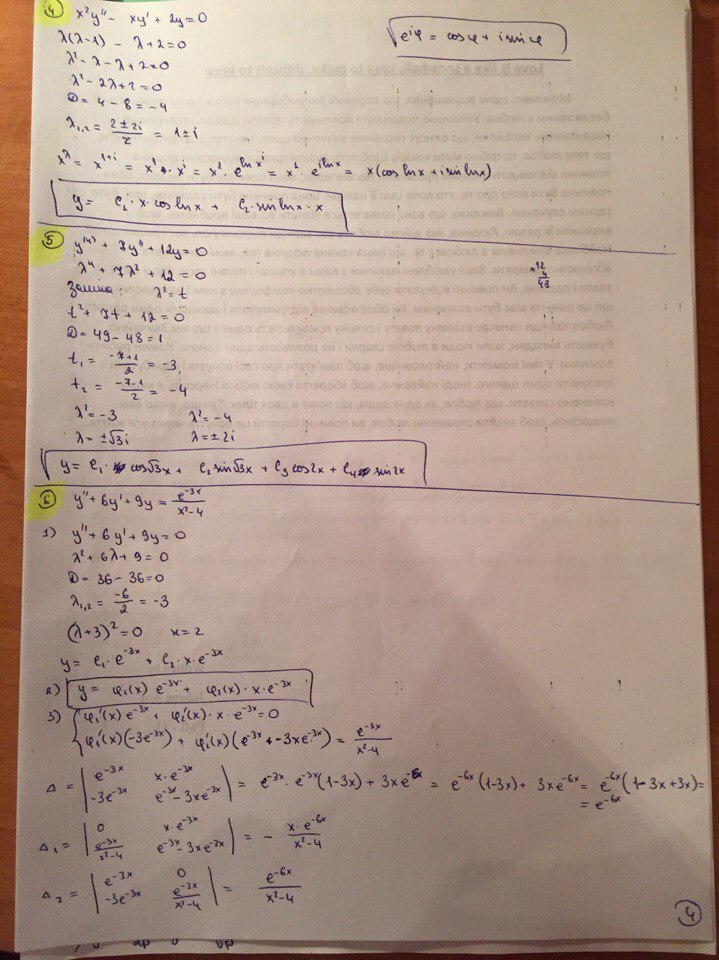 4
x²y'' - xy' + 2y = 0
e^{iφ} = cosφ + i sinφ
λ(λ-1) - λ + 2 = 0
λ² - λ - λ + 2 = 0
λ² - 2λ + 2 = 0
D = 4 - 8 = -4
λ₁,₂ = (2 ± 2i)/2 = 1 ± i
x^λ = x^{1+i} = x¹ · x^i = x¹ · e^{ln x^i} = x¹ e^{i ln x} = x(cos lnx + i sin lnx)
y = C₁ · x · cos lnx + C₂ · sin lnx · x
5
y⁽⁴⁾ + 7y'' + 12y = 0
λ⁴ + 7λ² + 12 = 0
× 12
4
48
Заміна: λ² = t
t² + 7t + 12 = 0
D = 49 - 48 = 1
t₁ = (-7+1)/2 = -3
t₂ = (-7-1)/2 = -4
λ² = -3 λ² = -4
λ = ±√3 i λ = ± 2i
y = C₁ · cos√3x + C₂ sin√3x + C₃ cos2x + C₄ sin2x
6
y'' + 6y' + 9y = e^{-3x}/(x²-4)
1) y'' + 6y' + 9y = 0
λ² + 6λ + 9 = 0
D = 36 - 36 = 0
λ₁,₂ = -6/2 = -3
(λ+3)² = 0 κ = 2
y = C₁ · e^{-3x} + C₂ · x · e^{-3x}
2) y = φ₁(x) e^{-3x} + φ₂(x) · x · e^{-3x}
3) { φ₁'(x) e^{-3x} + φ₂'(x) · x · e^{-3x} = 0
φ₁'(x)(-3e^{-3x}) + φ₂'(x)(e^{-3x} + -3xe^{-3x}) = e^{-3x}/(x²-4)
Δ = | e^{-3x} x·e^{-3x} ; -3e^{-3x} e^{-3x} - 3xe^{-3x} | = e^{-3x} · e^{-3x}(1-3x) + 3xe^{-6x} = e^{-6x}(1-3x) + 3xe^{-6x} = e^{-6x}(1-3x+3x) =
= e^{-6x}
Δ₁ = | 0 x·e^{-3x} ; e^{-3x}/(x²-4) e^{-3x} - 3xe^{-2x} | = - x·e^{-6x}/(x²-4)
Δ₂ = | e^{-3x} 0 ; -3e^{-3x} e^{-3x}/(x²-4) | = e^{-6x}/(x²-4)
4